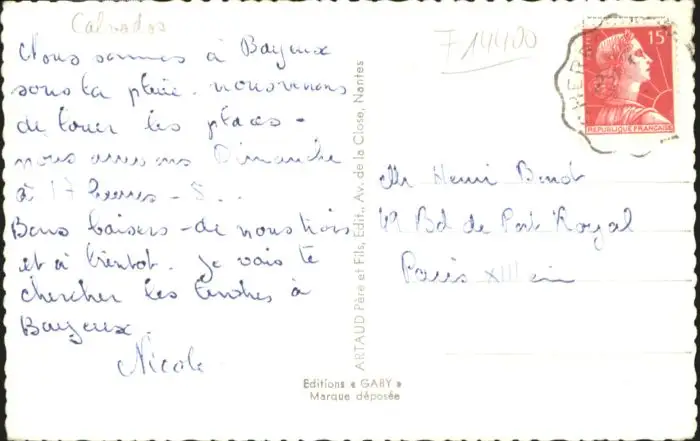 Calvados
Nous sommes à Bayeux
sous la pluie. nous venons
de louer les places -
nous arrivons Dimanche
à 17 heures -
Bons baisers - de nous trois
et à bientot. Je vais te
chercher les timbres à
Bayeux.
Nicole
ARTAUD Père et Fils, Edit., Av. de la Close, Nantes
Editions « GABY »
Marque déposée
F 14400
15F
REPUBLIQUE FRANÇAISE
Mr Henri Benot
49 Bd de Port Royal
Paris XIII em